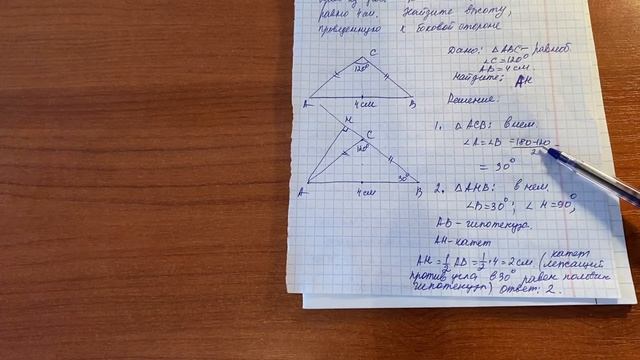 равно 4 см. Найдите высоту,
проведенную к боковой стороне
Дано: △ABC - равноб.
∠C = 120°
AB = 4 см.
Найдите: AH
Решение.
C
120°
A 4 см B
H
C
120°
30°
A 4 см B
1. △ACB: в нем.
∠A = ∠B = 180-120 / 2
= 30°
2. △AHB: в нем.
∠B = 30°; ∠H = 90°,
AB - гипотенуза.
AH - катет
AH = 1/2 AB = 1/2 · 4 = 2 см (катет
лежащий
против угла в 30° равен половин
гипотенузы) ответ: 2.